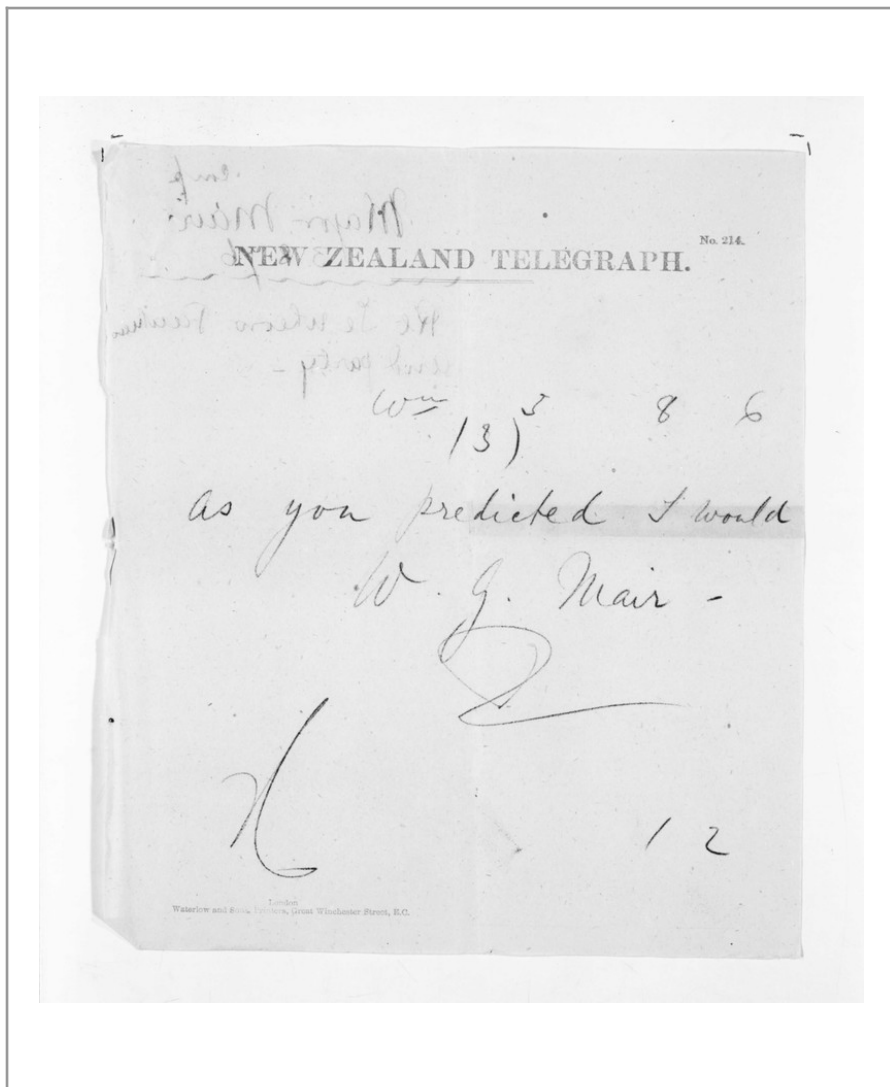 No. 214.
NEW ZEALAND TELEGRAPH.
8 6
13) 3
as you predicted I would
W. G. Mair -
1 2
London
Waterlow and Sons, Printers, Great Winchester Street, E.C.